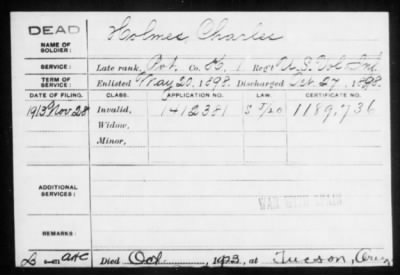 DEAD
Holmes, Charles
NAME OF SOLDIER:
SERVICE: Late rank, Pvt. Co. K, 1 Reg't U.S. Vol. Inf.
TERM OF SERVICE: Enlisted May 20, 1898. Discharged Oct. 27, 1898.
DATE OF FILING. CLASS. APPLICATION NO. LAW. CERTIFICATE NO.
1913 Nov 28 Invalid, 1412381 1189,736
Widow,
Minor,
ADDITIONAL SERVICES:
WAR WITH SPAIN
REMARKS:
Died Oct. , 1923, at Tucson, Ariz